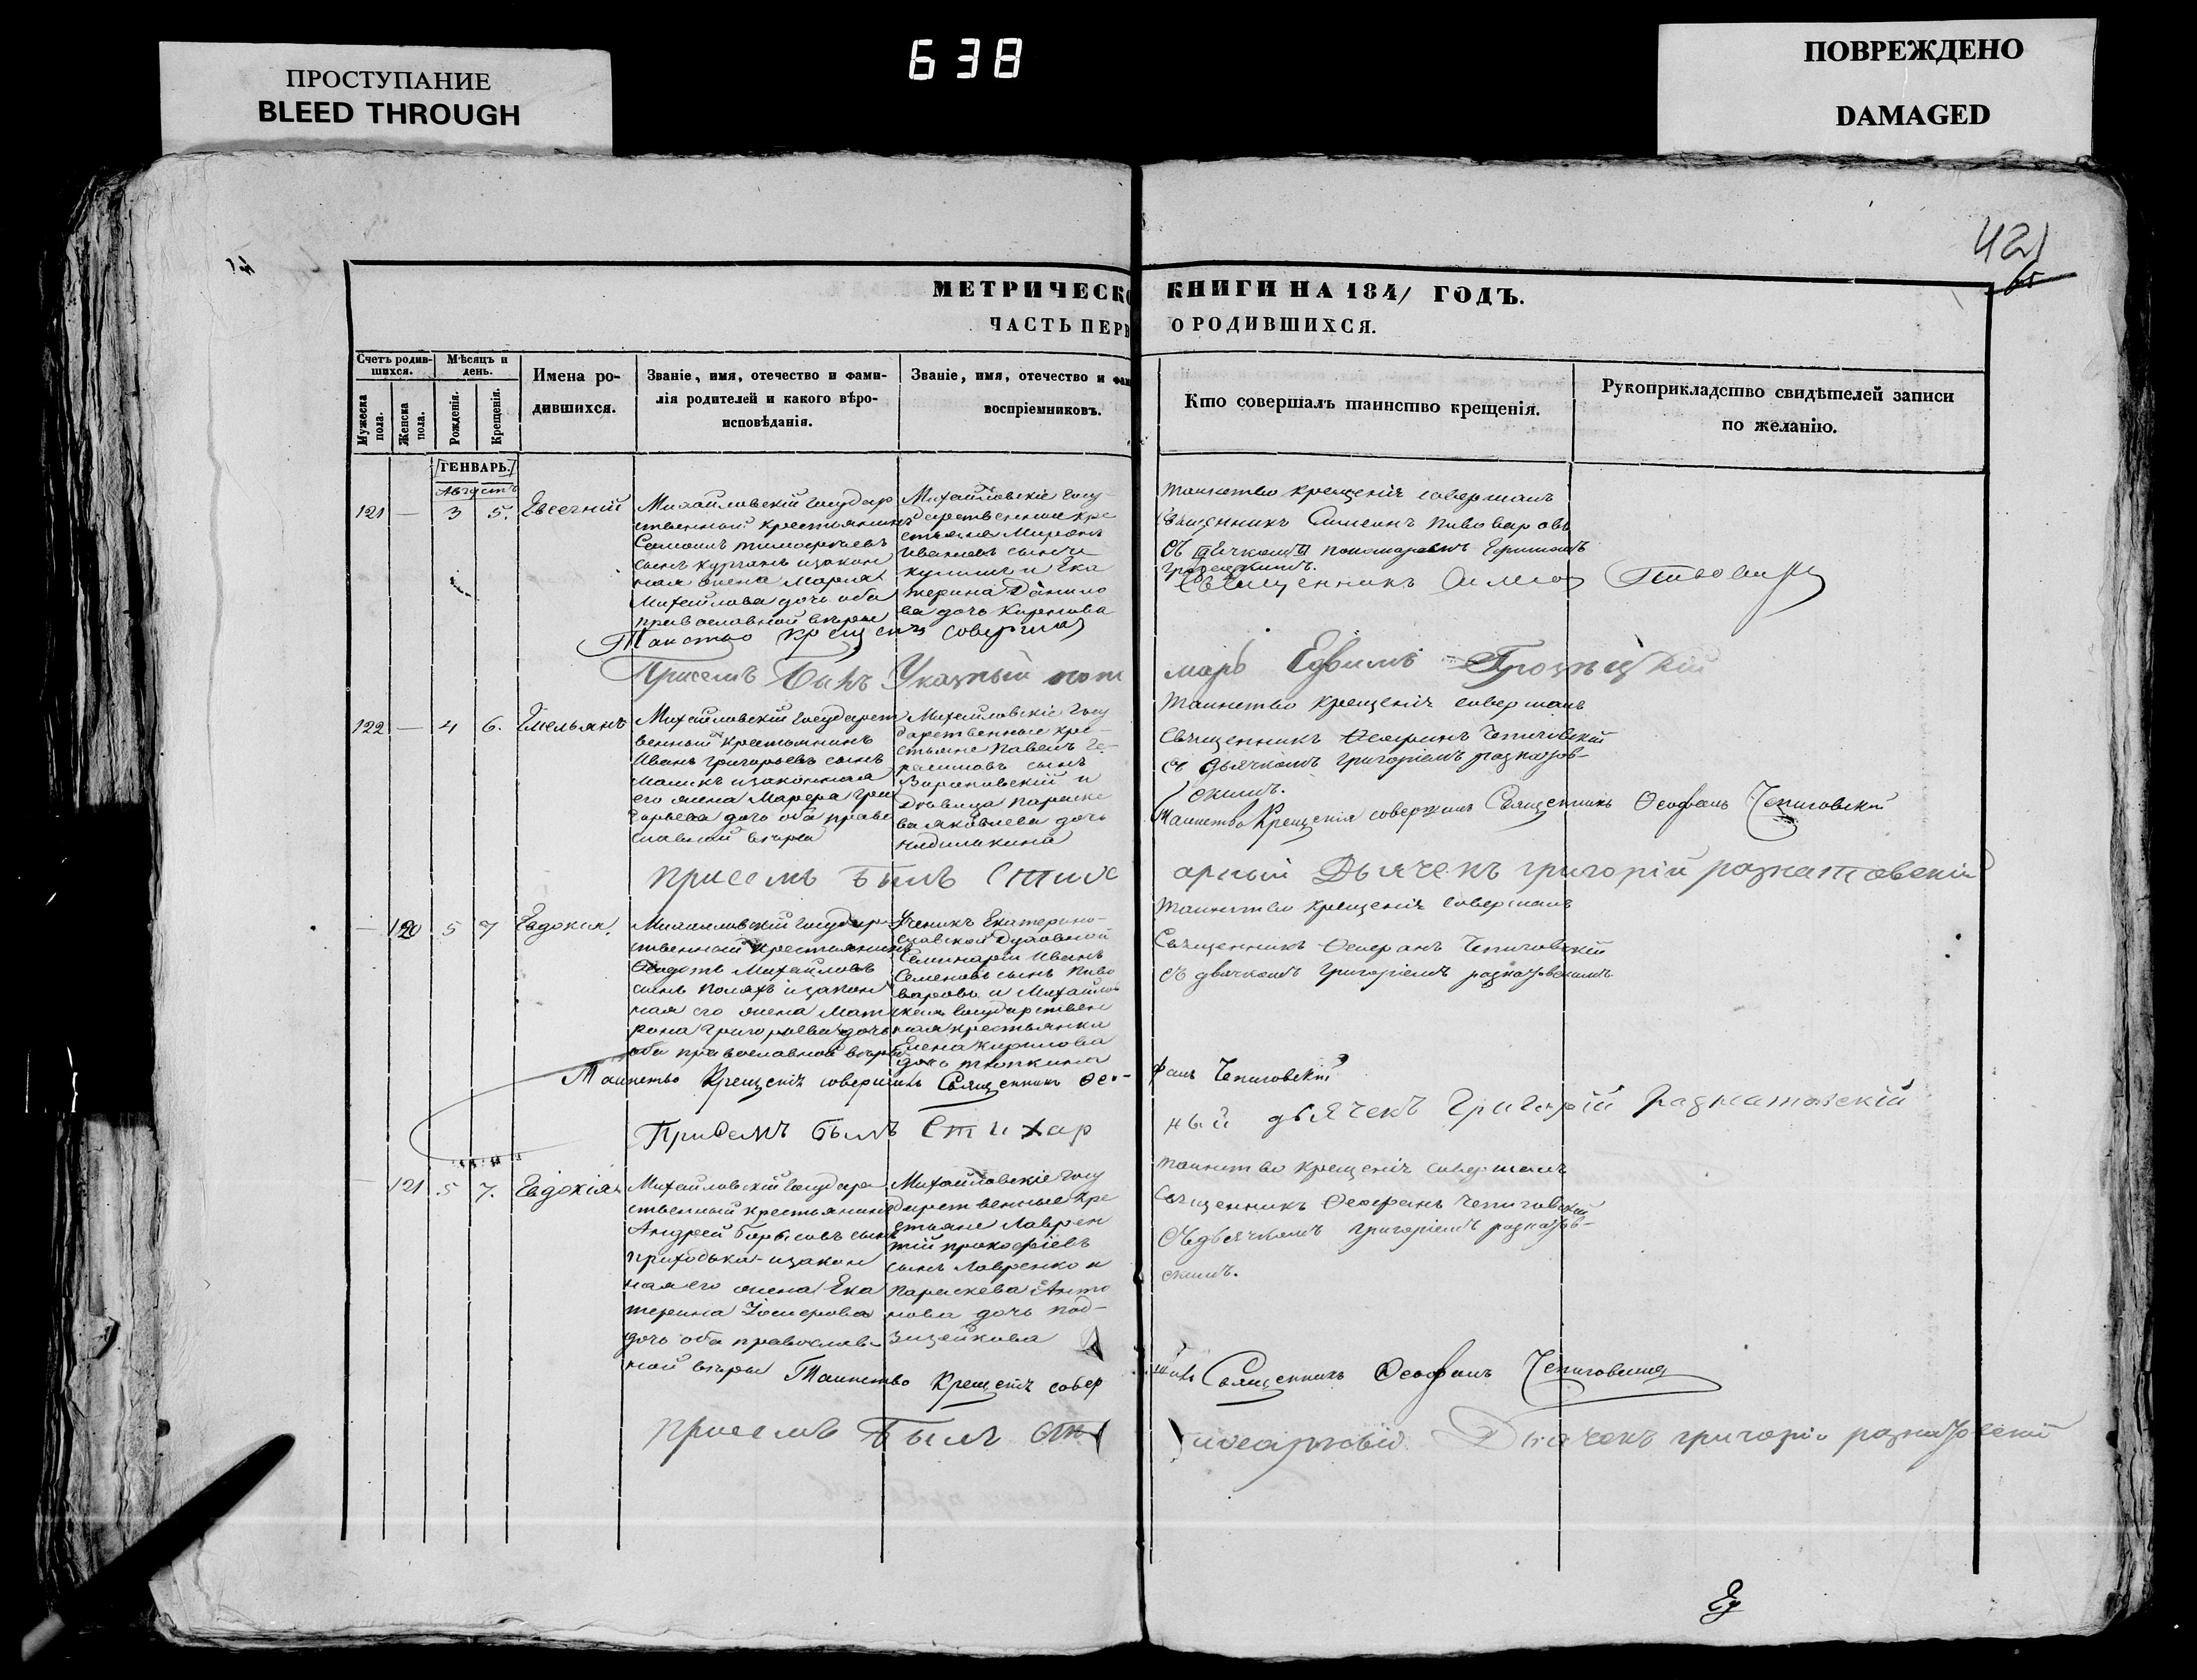 638
ПРОСТУПАНИЕ
BLEED THROUGH
ПОВРЕЖДЕНО
DAMAGED
421
65
МЕТРИЧЕСКО КНИГИ НА 1841 ГОДЪ.
ЧАСТЬ ПЕРВ О РОДИВШИХСЯ.
Счетъ родив-
шихся.
Мужеска
пола.
Женска
пола.
Мѣсяцъ и
день.
Рожденія.
Крещенія.
Имена ро-
дившихся.
Званіе, имя, отечество и фами-
лія родителей и какого вѣро-
исповѣданія.
Званіе, имя, отечество и фам
воспріемниковъ.
Кто совершалъ таинство крещенія.
Рукоприкладство свидѣтелей записи
по желанію.
ГЕНВАРЬ.
Августъ
121
—
3
5.
Евсегній
Михайловскій государ
ственный крестьянинъ
Самоилъ Тимофѣевъ
сынъ Курганъ и закон
ная жена Марѳа
Михайлова дочь оба
православной вѣры
Михайловскіе госу
дарственные кре
стьяне Миронъ
Ивановъ сынъ
и Ека
терина Данило
ва дочь
Таинство крещенія совершалъ
Священникъ Симеонъ Пивоваровъ
съ пономаремъ
Священникъ Пивоваро
Таинство Крещенія совершал
При семъ былъ Указный поно марь Грозицкій
122
—
4
6.
Емельянъ
Михайловскій государст
венный крестьянинъ
Иванъ Григорьевъ сынъ
и законная
его жена Марѳа Гри
горьева дочь оба право
славной вѣры
Михайловскіе госу
дарственные кре-
стьяне Павелъ Ге-
расимовъ сынъ
и
Дѣвица Параске
ва Яковлева дочь
Таинство крещенія совершалъ
Священникъ Ѳеофанъ Чепиговскій
съ дьячкомъ Григоріемъ Разнатов-
скимъ.
Таинство Крещенія совершалъ Священникъ Ѳеофанъ Чепиговскій
При семъ былъ Стих арный Дьячекъ Григорій Разнатовскій
—
120
5
7
Евдокія.
Михайловскій государ
ственный крестьянинъ
Ѳеодотъ Михайловъ
сынъ Поляхъ и закон
ная его жена Мат
рона Григорьева дочь
оба православной вѣры
Ученикъ Екатерино-
славской Духовной
Семинаріи Иванъ
Семеновъ сынъ Пиво
варовъ и Михайлов
ская государствен
ная крестьянка
Елена Кирилова
дочь Тюпкина
Таинство крещенія совершалъ
Священникъ Ѳеофанъ Чепиговскій
съ дьячкомъ Григоріемъ Разнатовскимъ
Таинство Крещенія совершилъ Священникъ Ѳео- фанъ Чепиговскій
При семъ былъ Стихар ный дьячекъ Григорій Разнатовскій
—
121
5
7.
Евдокія
Михайловскій государ
ственный крестьянинъ
Андрей Борисовъ сынъ
Приходько и закон
ная его жена Ека
терина
дочь оба православ
ной вѣры
Михайловскіе госу
дарственные кре
стьяне Лаврен
тій Прокофіевъ
сынъ Лавренко и
Параскева Анто
нова дочь Под-
Таинство крещенія совершалъ
Священникъ Ѳеофанъ Чепиговскій
Съ дьячкомъ Григоріемъ Разнатов-
скимъ.
Таинство Крещенія совер шилъ Священникъ Ѳеофанъ Чепиговскій
При семъ былъ Сти харный Дьячекъ Григорій Разнатовскій